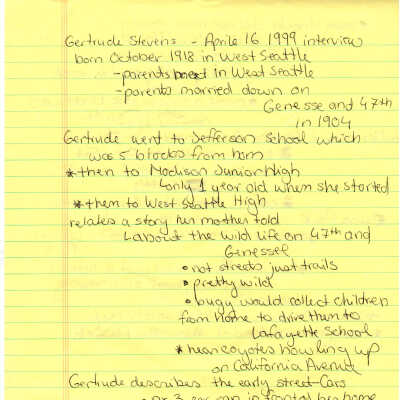 Gertrude Stevens - Aprile 16 1999 interview
born October 1918 in West Seattle
-parents meet in West Seattle
-parents married down on
Genesse and 47th
in 1904
Gertrude went to Jefferson School which
was 5 blocks from hom
*then to Madison Junior High
only 1 year old when she started
*then to West Seattle High
relates a story her mother told
about the wild life on 47th and
Genessee
• not streets just trails
• pretty wild
• bugy would collect children
from home to drive them to
Lafayette School
* hear coyotes howling up
on California Avenue
Gertrude describes the early street-Cars
3 car ran in front of her home